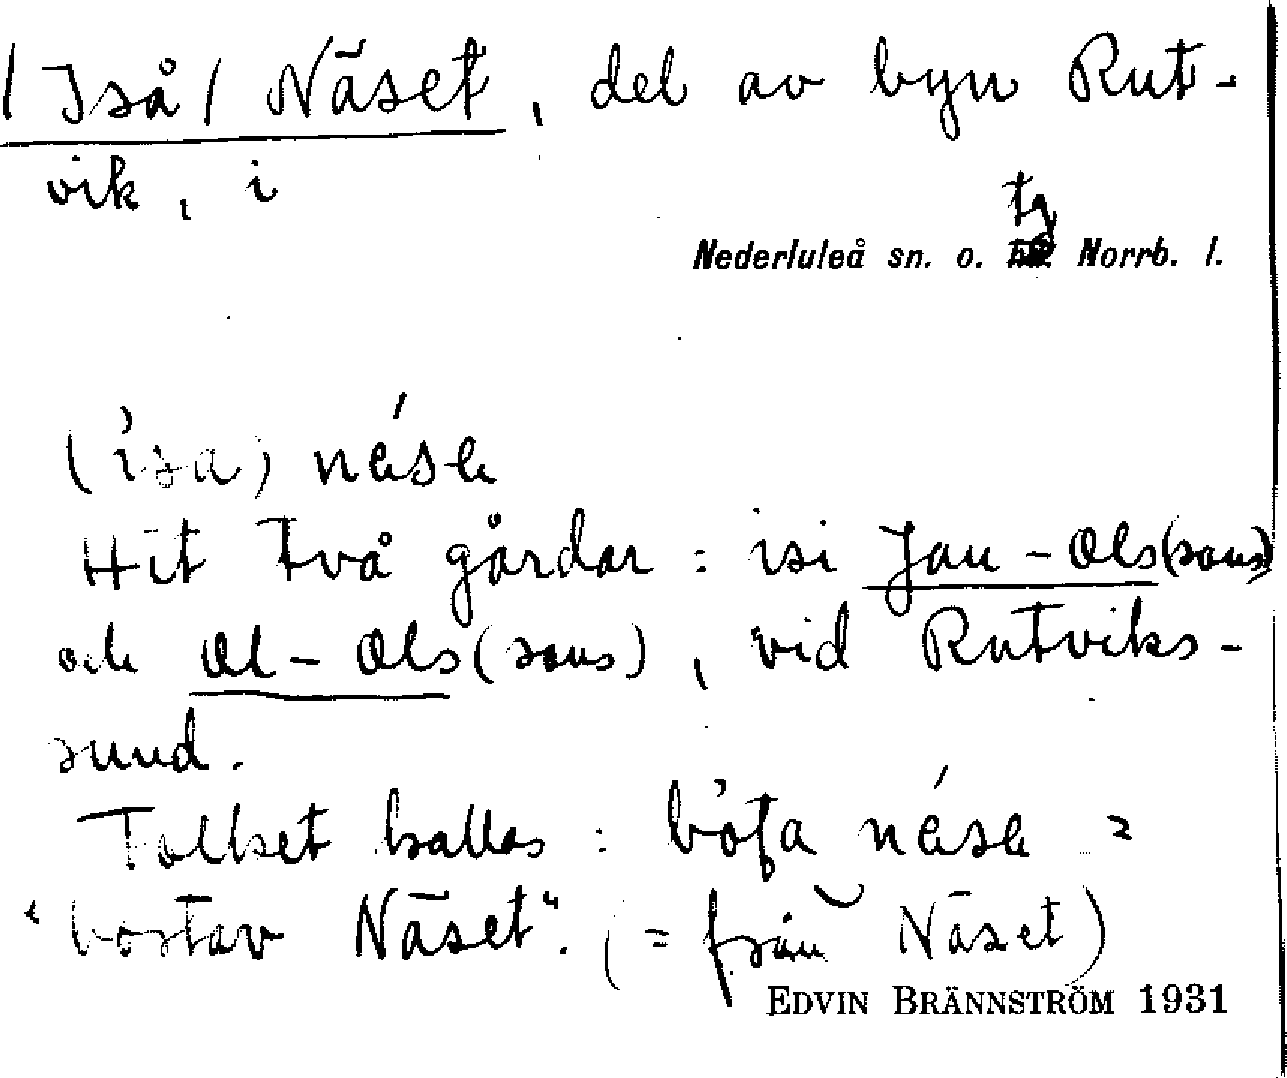 /Iså/ Näset, del av byn Rut-
vik, i
tg
Nederluleå sn. o. Norrb. l.
(ìsa) nésε
Hit två gårdar: isi Jan-Ols(sons)
och Ol-Ols(sons), vid Rutviks-
sund.
Folket kallas: nésε =
"bortav Näset". (= från Näset)
EDVIN BRÄNNSTRÖM 1931